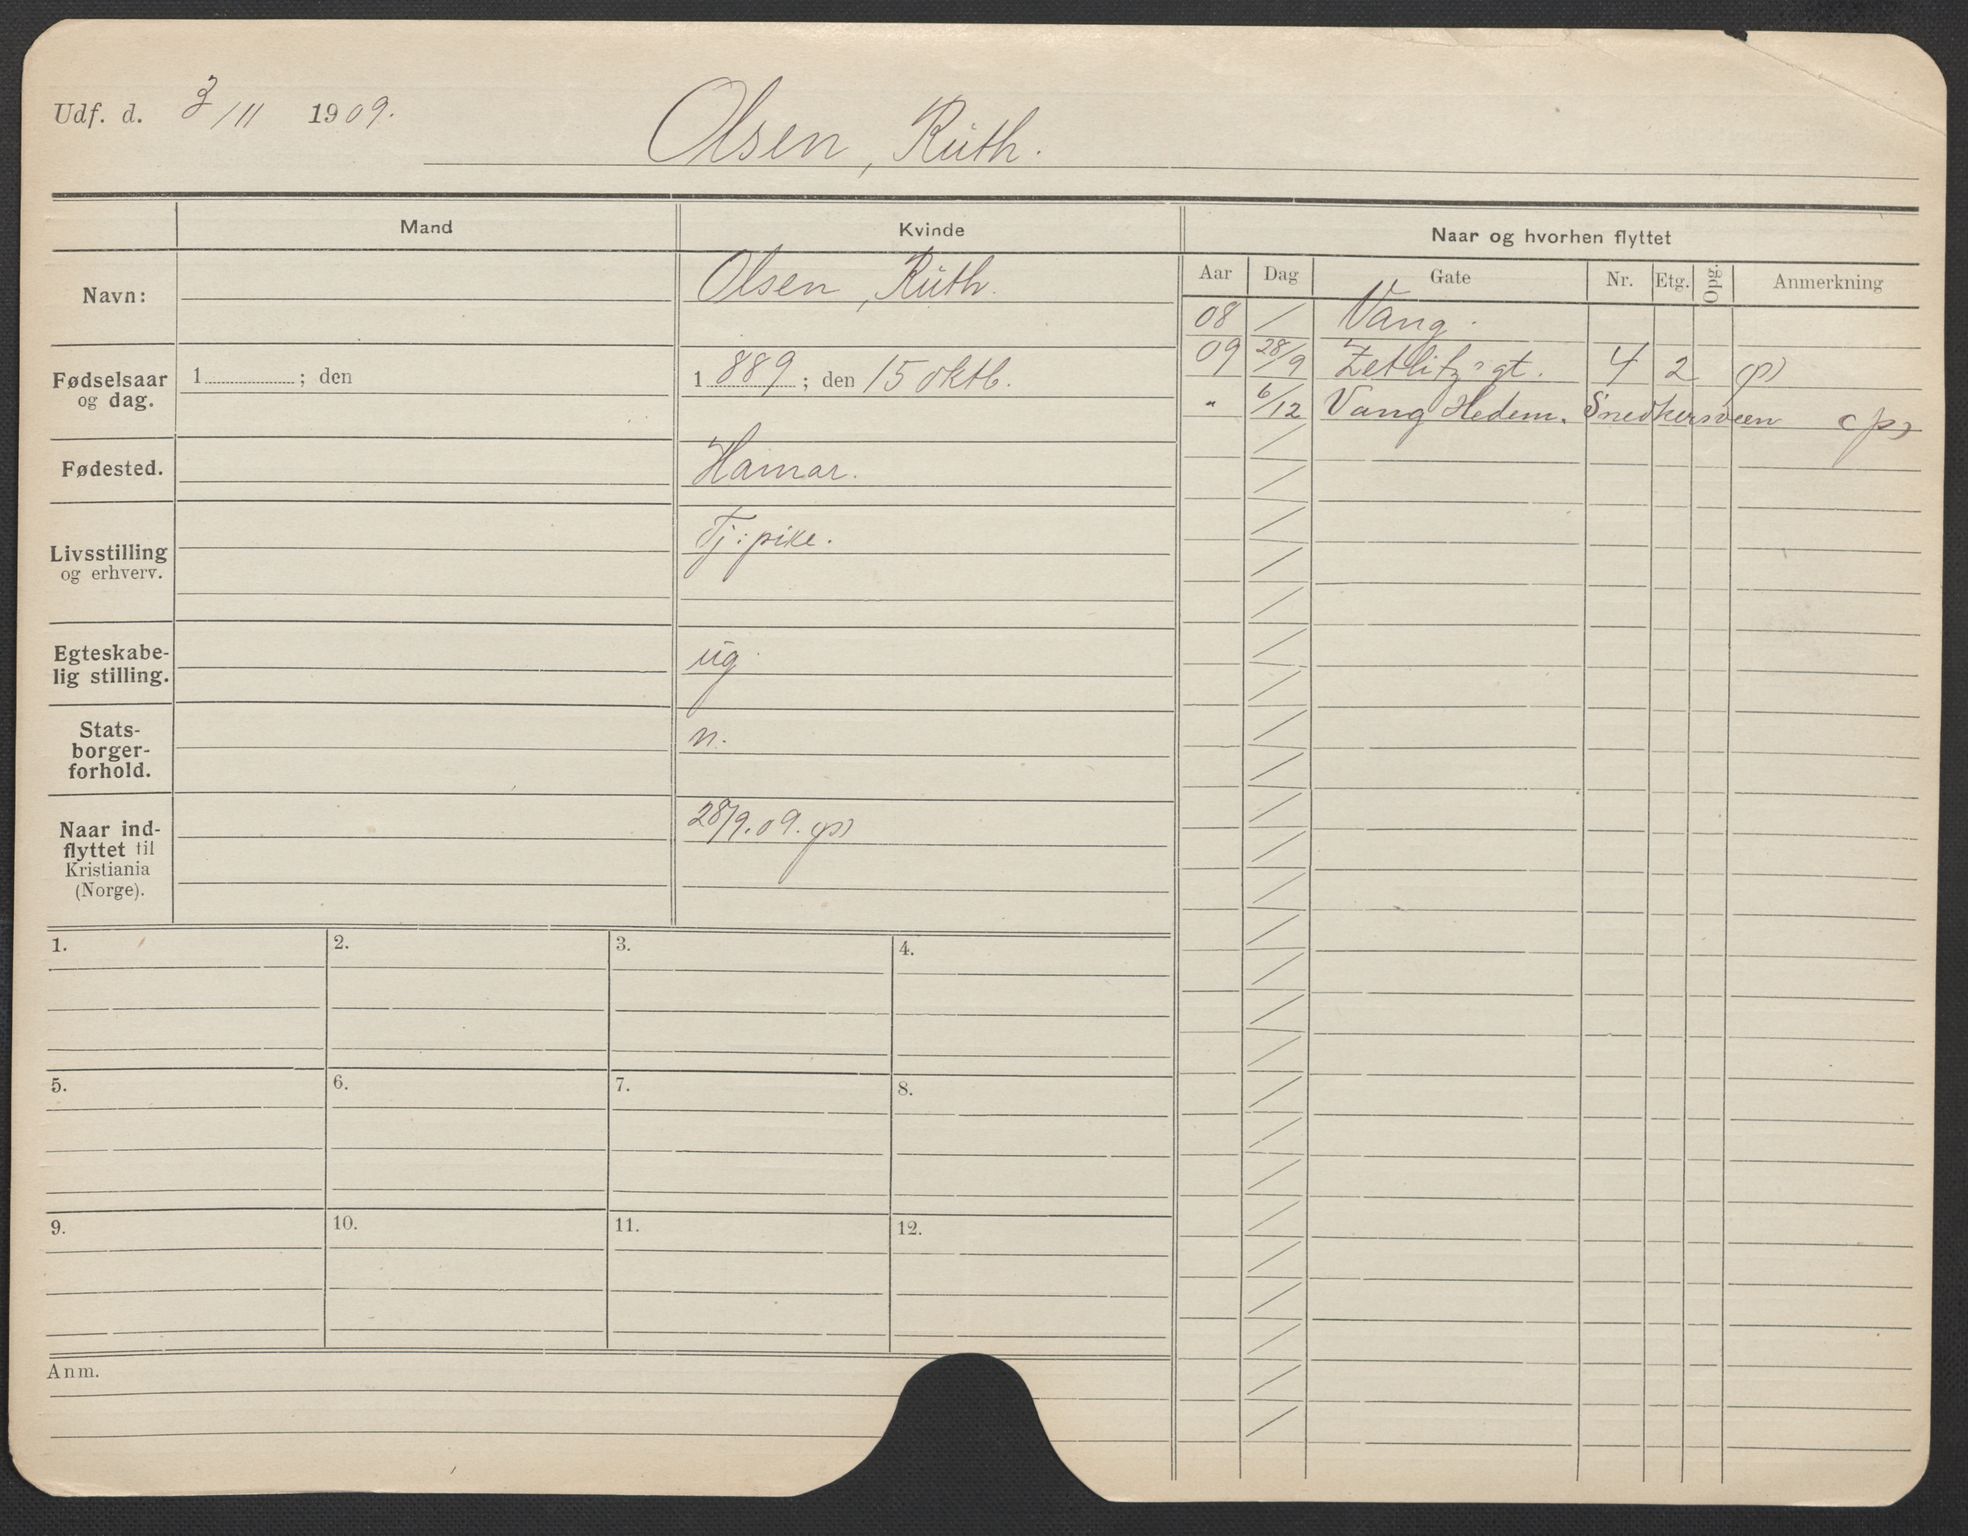 Udf. d. 3/11 1909.
Olsen, Ruth.
Mand
Kvinde
Naar og hvorhen flyttet
Aar Dag Gate Nr. Etg. Opg. Anmerkning
Navn:
Olsen, Ruth.
08 / Vang.
09 28/9 Zetlitzsgt. 4 2 (p)
" 6/12 Vang Hedem. Snedkersveen (p)
Fødselsaar
og dag.
1 ; den
1 889 ; den 15 oktb.
Fødested.
Hamar.
Livsstilling
og erhverv.
Tj: pike.
Egteskabe-
lig stilling.
ug.
Stats-
borger-
forhold.
n.
Naar ind-
flyttet til
Kristiania
(Norge).
28/9.09. (p)
1. 2. 3. 4.
5. 6. 7. 8.
9. 10. 11. 12.
Anm.